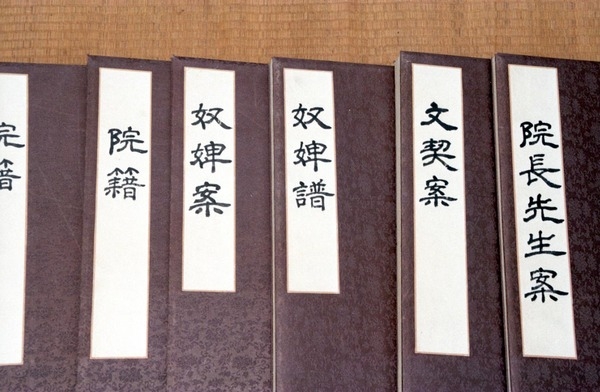 院長先生案
文契案
奴婢譜
奴婢案
院籍
院籍